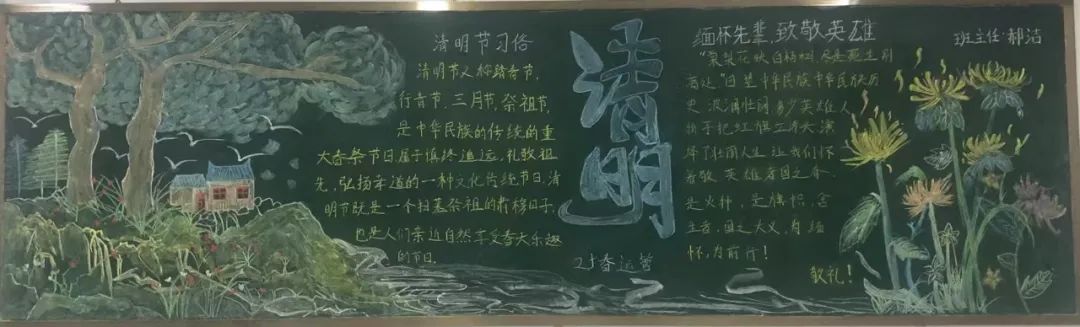 清明节习俗
清明节又称踏青节,
行青节、三月节、祭祖节,
是中华民族的传统的重
大春祭节日属于慎终追远、礼敬祖
先,弘扬孝道的一种文化传统节日,清
明节既是一个扫墓祭祖的肃穆日子,
也是人们亲近自然享受春天乐趣
的节日.
清明
缅怀先辈,致敬英雄
班主任:郝洁
"棠梨花映白杨树,尽是死生别
离处."
中华民族
史 波澜壮阔 多少英雄人
把红旗立春天 演
绎了壮阔人生 让我们怀
着敬 英雄
是火种, 是旗帜, 舍
生 国之大义,
怀, 为前行!
敬礼!